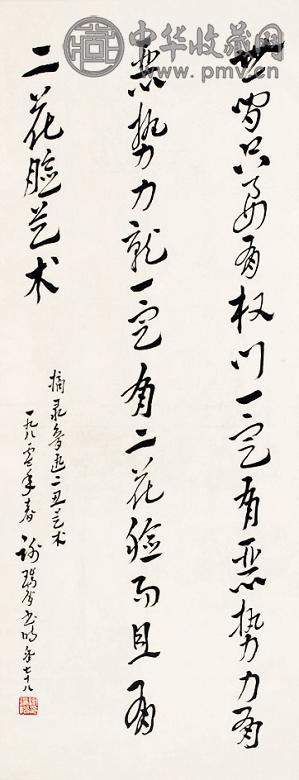 中华收藏网
www.pmv.cn
世间只要有权门一定有恶势力有
恶势力就一定有二花脸而且有
二花脸艺术
摘录鲁迅二丑艺术
一九八零年春 谢瑞阶书时年七十八